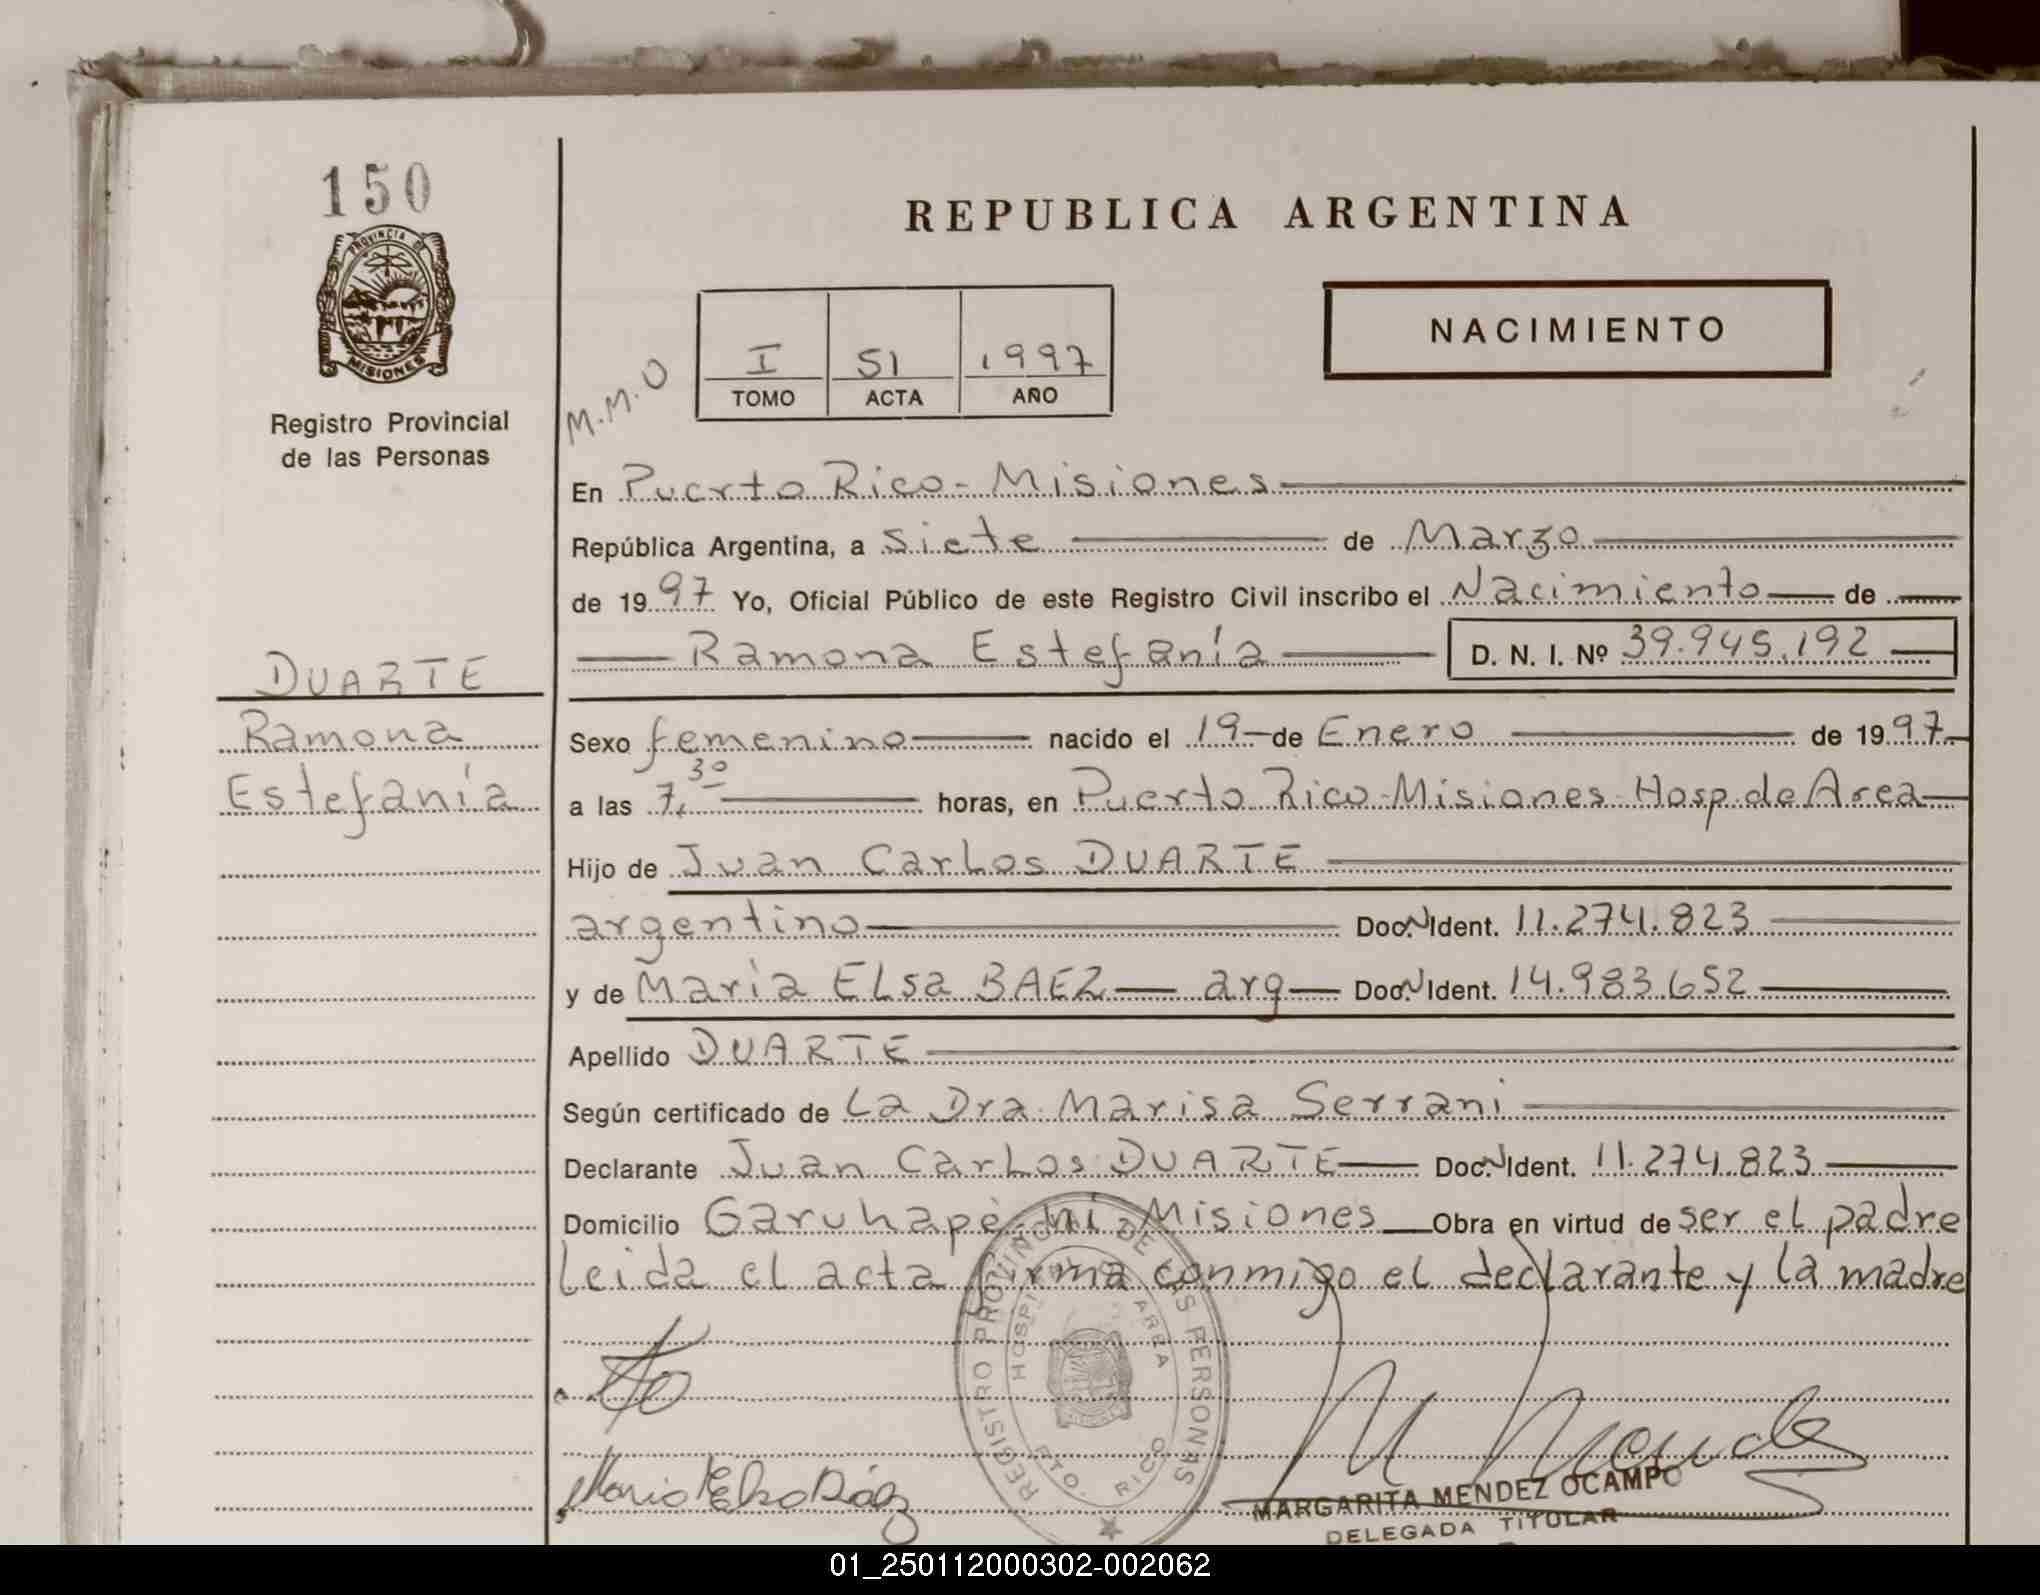 150
PROVINCIA DE
MISIONES
Registro Provincial
de las Personas
DUARTE
Ramona
Estefanía
REPUBLICA ARGENTINA
NACIMIENTO
M.M.O
I 51 1997
TOMO ACTA AÑO
En Puerto Rico - Misiones
República Argentina, a siete de Marzo
de 1997 Yo, Oficial Público de este Registro Civil inscribo el Nacimiento de
Ramona Estefanía D. N. I. Nº 39.945.192
Sexo femenino nacido el 19 de Enero de 1997
a las 7,30 horas, en Puerto Rico-Misiones-Hosp. de Area
Hijo de Juan Carlos DUARTE
argentino Doc. N Ident. 11.274.823
y de María Elsa BAEZ arg Doc. N Ident. 14.983.652
Apellido DUARTE
Según certificado de La Dra. Marisa Serrani
Declarante Juan Carlos DUARTE Doc. N Ident. 11.274.823
Domicilio Garuhapé-mí Misiones Obra en virtud de ser el padre
leida el acta firma conmigo el declarante y la madre
REGISTRO PROVINCIAL DE LAS PERSONAS
HOSPITAL DE AREA
PTO. RICO
MARGARITA MENDEZ OCAMPO
DELEGADA TITULAR
01_250112000302-002062